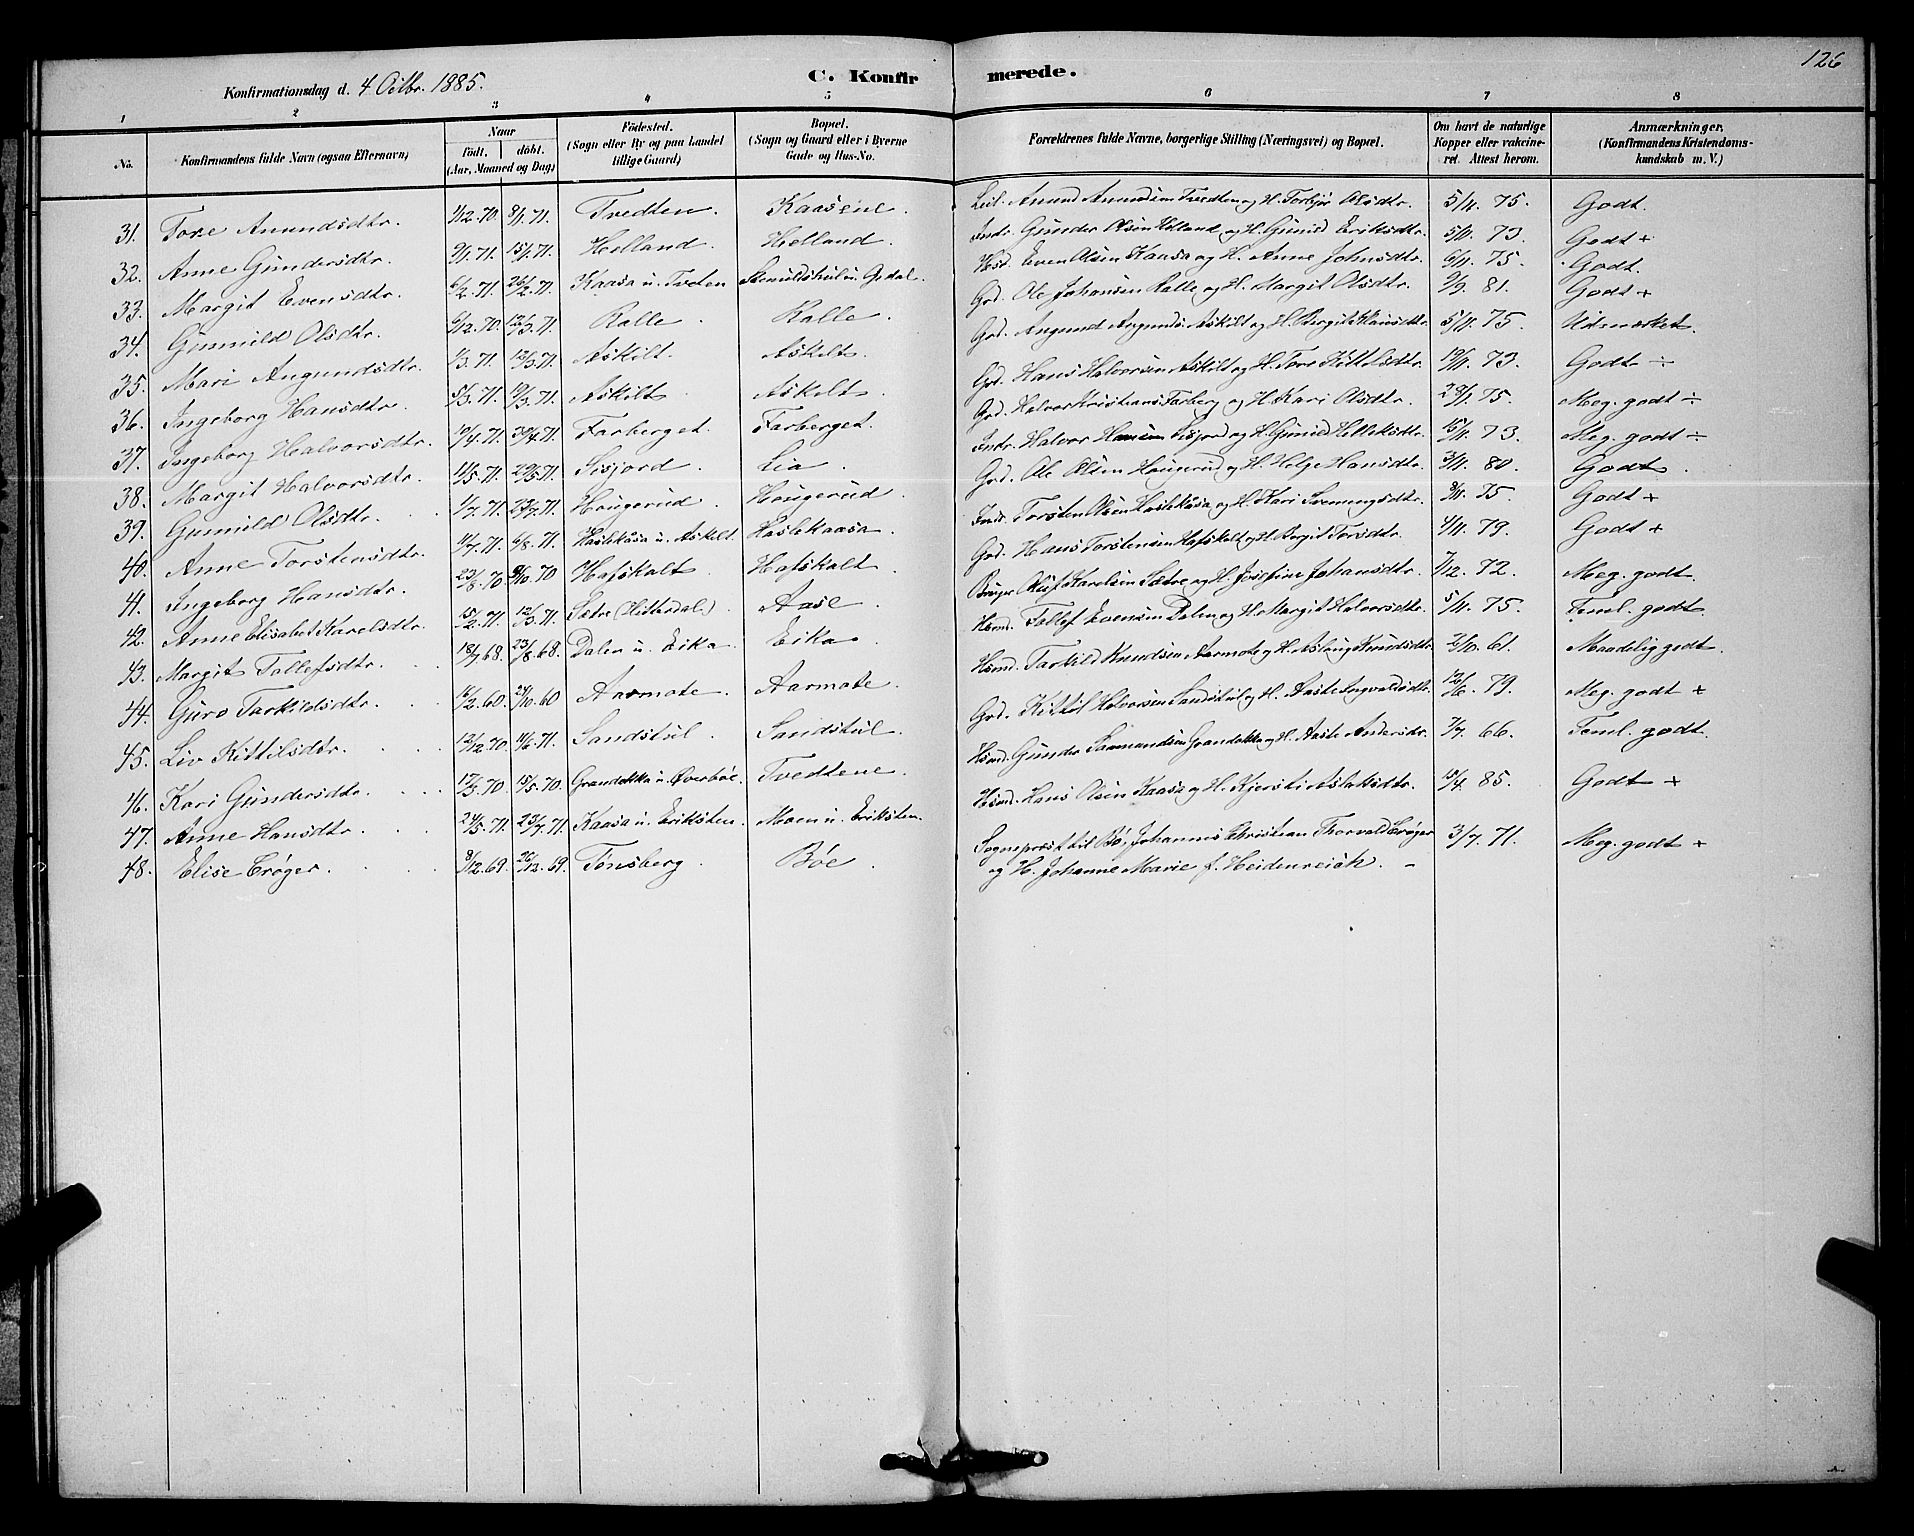 126
Konfirmationsdag d. 4 Octbr. 1885.
C. Konfirmerede.
1 2 3 4 5 6 7 8
No. Konfirmandens fulde Navn (ogsaa Efternavn) Naar födt, döbt. (Aar, Maaned og Dag) Födested. (Sogn eller By og paa Landet tillige Gaard) Bopæl. (Sogn og Gaard eller i Byerne Gade og Hus-No. Forældrenes fulde Navne, borgerlige Stilling (Næringsvei) og Bopæl. Om havt de naturlige Kopper eller vakcineret. Attest herom. Anmærkninger. (Konfirmandens Kristendomskundskab m. V.)
31. Tore Amundsdtr. 1/12.70. 8/1.71. Tvedten. Kaasene. Leil. Amund Amundsen Tvedten og H. Torbjør Olsdtr. 5/11. 75. Godt.
32. Anne Gundersdtr. 9/1.71. 15/1.71. Helland. Helland. Indr. Gunder Olsen Helland og H. Gunild Eriksdtr. 5/11. 73. Godt +
33. Margit Evensdtr. 6/2.71. 26/2.71. Kaasa u. Tveten Even Olsen Kaasa og H. Anne Johnsdtr. 6/11. 75. Godt.
34. Gunnild Olsdtr. 6/12.70. 12/3.71. Ralle. Ralle. Grd. Ole Johansen Ralle og H. Margit Olsdtr. 9/9. 81. Godt +
35. Mari Angundsdtr. 1/3.71. 12/3.71. Askilt. Askilt. Grd. Angund Angunds. Askilt og H. Birgit Hansdtr. 5/11. 75. Udmærket.
36. Ingeborg Hansdtr. 5/3.71. 19/3.71. Askilt. Askilt. Grd. Hans Halvorsen Askilt og H. Tore Kittilsdtr. 19/11. 73. Godt ÷
37. Ingeborg Halvorsdtr. 10/4.71. 30/4.71. Farberget. Farberget. Grd. Halvor Kristians. Farberg og H. Kari Olsdtr. 29/1. 75. Meg. godt ÷
38. Margit Halvorsdtr. 11/5.71. 29/5.71. Sisjord. Lia. Indr. Halvor Hansen Sisjord og H. Gunild Helleksdtr. 15/11. 73. Meg. godt ÷
39. Gunnild Olsdtr. 1/7.71. 23/7.71. Hougerud. Hougerud. Grd. Ole Olsen Hougerud og H. Helge Hansdtr. 3/11. 80. Godt.
40. Anne Torstensdtr. 11/7.71. 6/8.71. Haslekåsa u. Askilt. Haslekaasa. Torsten Olsen Haslekåsa og H. Kari Svenungsdtr. 8/11. 75. Godt +
41. Ingeborg Hansdtr. 23/8.70. 9/10.70 Hafskalt. Hafskalt. Grd. Hans Torstensen Hafskalt og H. Birgit Torsdtr. 4/11. 79. Godt +
42. Anne Elisabet Karelsdtr. 15/2.71. 12/3.71. Sætre (Hitterdal.) Aase. Karelsen Sætre og H. Josefine Johansdtr. 7/12. 72. Meg. godt.
43. Margit Tollefsdtr. 18/7.68. 23/8.68. Dalen u. Eika. Eika. Tollef Evensen Dalen og H. Margit Halvorsdtr. 5/11. 75. Teml. godt
44. Guro Tarkildsdtr. 16/2.60. 21/10.60 Aarmote. Aarmote. Hsmd. Tarkild Knudsen Aarmote og H. Aslaug Knudsdtr. 2/10. 61. Maadelig godt.
45. Liv Kittilsdtr. 12/12.70. 11/6.71. Sandstul. Sandstul. Grd. Kittil Halvorsen Sandstul og H. Aaste Ingvaldsdtr. 12/6. 79. Meg. godt +
46. Kari Gundersdtr. 17/3.70. 15/5.70. Grandokka u. Øverbøe. Tvedtene. Hsmd. Gunder Saamundsen Grandokka og H. Aaste Andersdtr. 7/7. 66. Teml. godt.
47. Anne Hansdtr. 24/5.71. 23/7.71. Kaasa u. Eriksten. Moen u. Eriksten. Hsmd. Hans Olsen Kaasa og H. Kjersti Aslaksdtr. 10/4. 85. Godt +
48. Elise Crøger. 8/12.69. 26/12.69. Tønsberg. Bøe. Sogneprest til Bø, Johannes Christian Thorvald Crøger 3/7. 71. Meg. godt +
og H. Johanne Marie f. Heidenreich. -